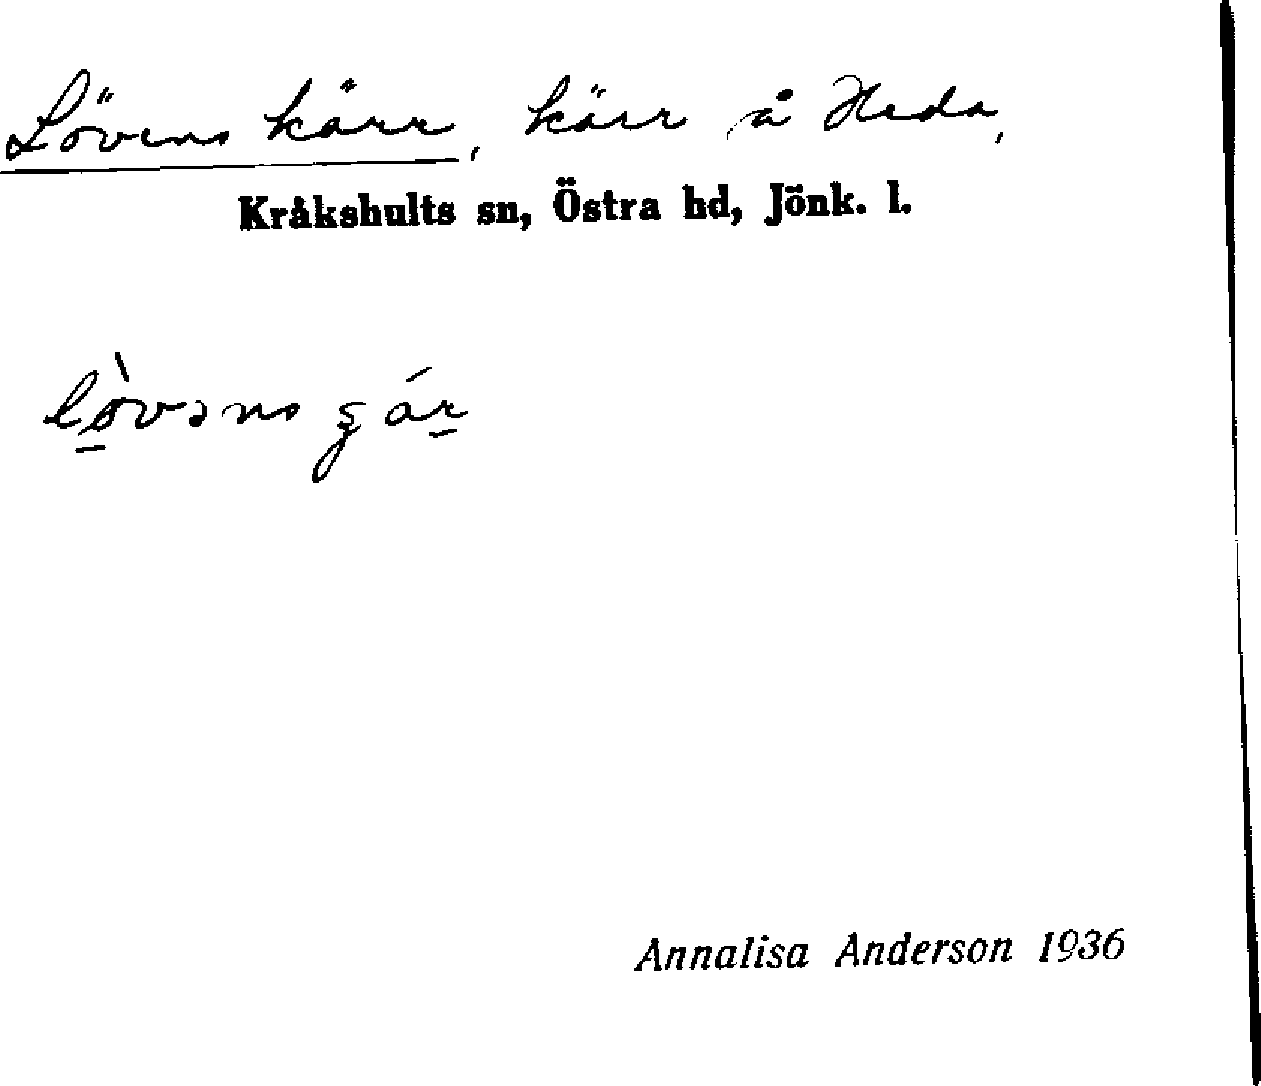 Lövens kärr, kärr å Heda,
Kråkshults sn, Östra hd, Jönk. l.
Annalisa Anderson 1936